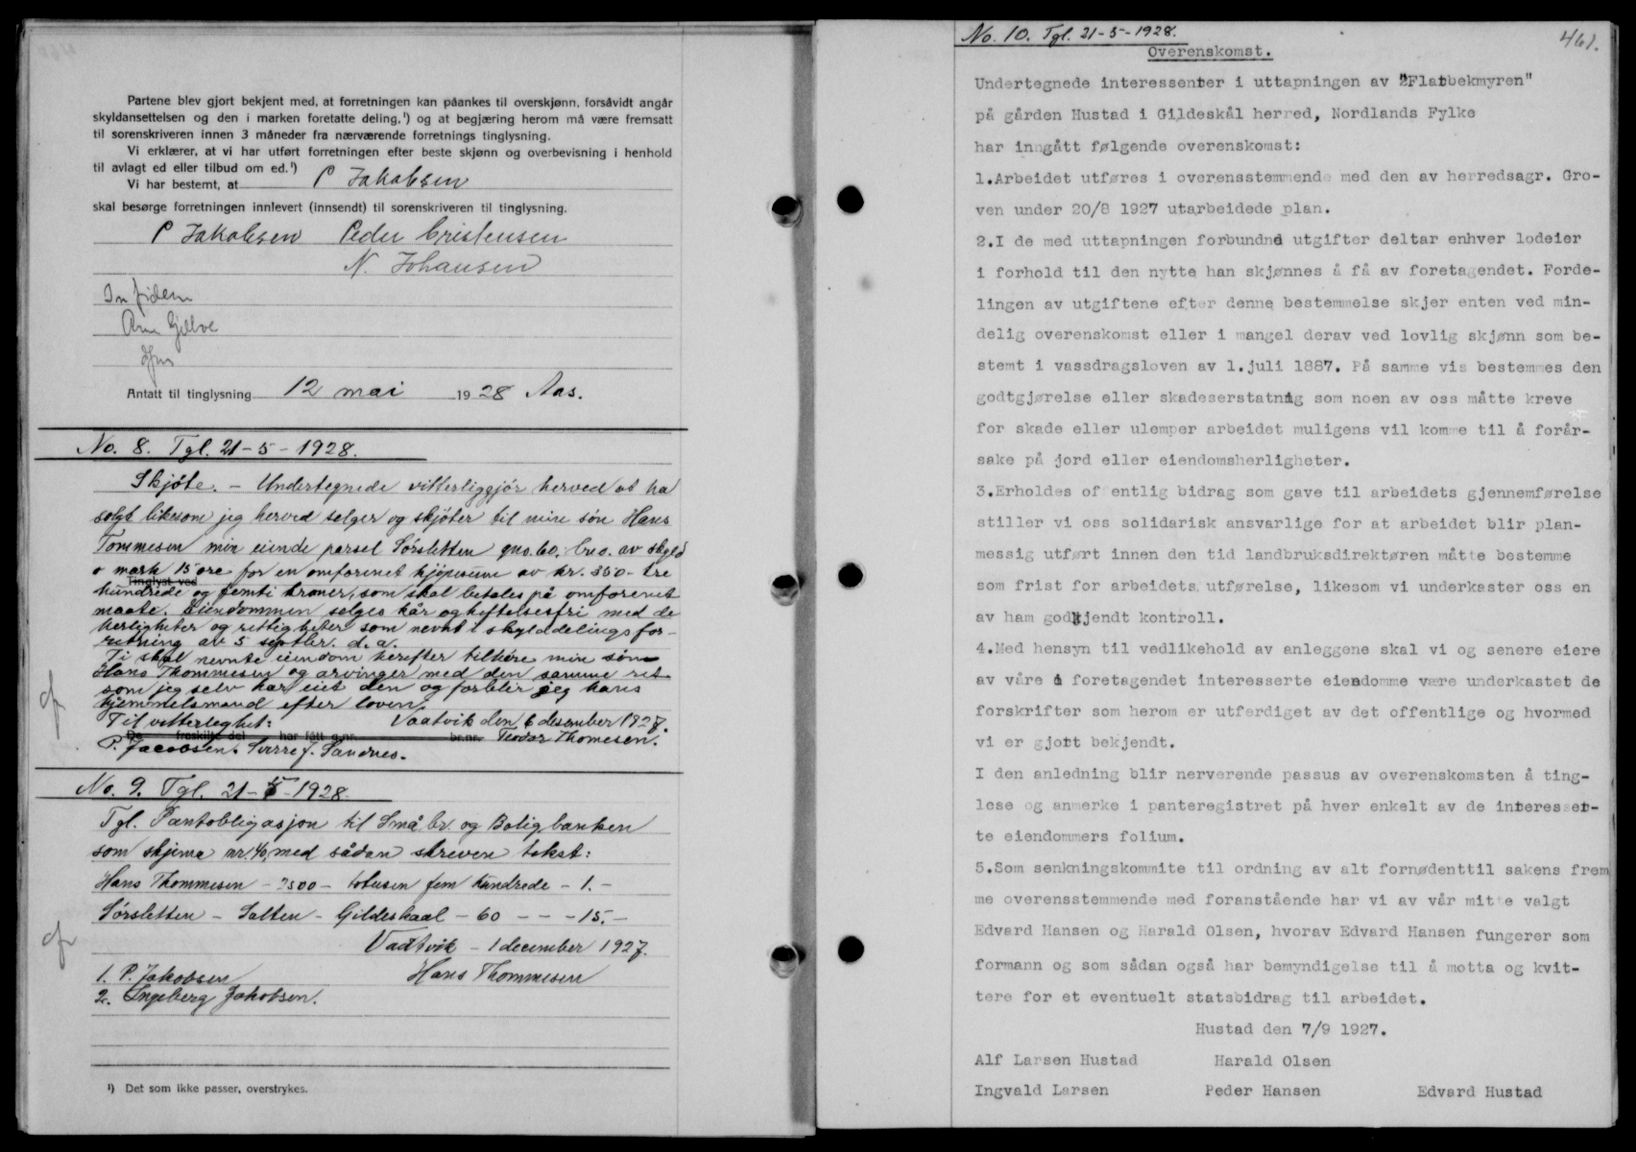 Partene blev gjort bekjent med, at forretningen kan påankes til overskjønn, forsåvidt angår
skyldansettelsen og den i marken foretatte deling,¹) og at begjæring herom må være fremsatt
til sorenskriveren innen 3 måneder fra nærværende forretnings tinglysning.
Vi erklærer, at vi har utført forretningen efter beste skjønn og overbevisning i henhold
til avlagt ed eller tilbud om ed.¹)
Vi har bestemt, at P Jakobsen
skal besørge forretningen innlevert (innsendt) til sorenskriveren til tinglysning.
P Jakobsen Peder Cristensen
N. Johansen
In fidem
Arne Gjelbve
Antatt til tinglysning 12 mai 1928 Aas.
No. 8. Tgl. 21-5-1928.
Skjöte. - Undertegnede vitterliggjör herved at ha
solgt likesom jeg herved selger og skjöter til min sön Hans
Tommesen min eiende parsel Sörsletten gno. 60, bno. av skyld
o mark 15 øre for en omforenet kjöpesum av kr. 350- tre
Tinglyst ved
hundrede og femti kroner, som skal betales på omforenet
maate. Eiendommen selges kår og heftelsesfri med de
herligheter og rettigheter som nevnt i skylddelingsfor-
retning av 5 septbr. d.a.
Ti skal nevnte eiendom herefter tilhöre min sön
Hans Thommesen og arvinger med den samme ret
som jeg selv har eiet den og forblir jeg hans
hjemmelsmand efter loven.
Til vitterleghet: Vaatvik den 6 desember 1927.
De fraskilte del har fått g.nr. br.nr. Teodor Thomesen.
P. Jacobsen. Sverre J. Sandnes.
No. 9. Tgl. 21-5-1928.
Tgl. Pantobligasjon til Små br. og Boligbanken
som skjema nr. 40, med sådan skreven tekst:
Hans Thommesen - 2500 - totusen fem hundrede - 1. -
Sörsletten - Salten - Gildeskaal - 60 - - - 15. -
Vaatvik - 1 december 1927.
1. P. Jakobsen Hans Thommesen
2. Ingeberg Jakobsen.
¹) Det som ikke passer, overstrykes.
No. 10. Tgl. 21-5-1928. 461.
Overenskomst.
Undertegnede interessenter i uttapningen av "Flatbekmyren"
på gården Hustad i Gildeskål herred, Nordlands Fylke
har inngått følgende overenskomst:
1.Arbeidet utføres i overensstemmende med den av herredsagr. Gro-
ven under 20/8 1927 utarbeidede plan.
2.I de med uttapningen forbundne utgifter deltar enhver lodeier
i forhold til den nytte han skjønnes å få av foretagendet. Forde-
lingen av utgiftene efter denne bestemmelse skjer enten ved min-
delig overenskomst eller i mangel derav ved lovlig skjønn som be-
stemt i vassdragsloven av 1.juli 1887. På samme vis bestemmes den
godtgjørelse eller skadeserstatnig som noen av oss måtte kreve
for skade eller ulemper arbeidet muligens vil komme til å forår-
sake på jord eller eiendomsherligheter.
3.Erholdes offentlig bidrag som gave til arbeidets gjennemførelse
stiller vi oss solidarisk ansvarlige for at arbeidet blir plan-
messig utført innen den tid landbruksdirektøren måtte bestemme
som frist for arbeidets utførelse, likesom vi underkaster oss en
av ham godkjendt kontroll.
4.Med hensyn til vedlikehold av anleggene skal vi og senere eiere
av våre i foretagendet interesserte eiendomme være underkastet de
forskrifter som herom er utferdiget av det offentlige og hvormed
vi er gjort bekjendt.
I den anledning blir nerverende passus av overenskomsten å ting-
lese og anmerke i panteregistret på hver enkelt av de interesser-
te eiendommers folium.
5.Som senkningskommite til ordning av alt fornødenttil sakens frem
me overensstemmende med foranstående har vi av vår mitte valgt
Edvard Hansen og Harald Olsen, hvorav Edvard Hansen fungerer som
formann og som sådan også har bemyndigelse til å motta og kvit-
tere for et eventuelt statsbidrag til arbeidet.
Hustad den 7/9 1927.
Alf Larsen Hustad Harald Olsen
Ingvald Larsen Peder Hansen Edvard Hustad